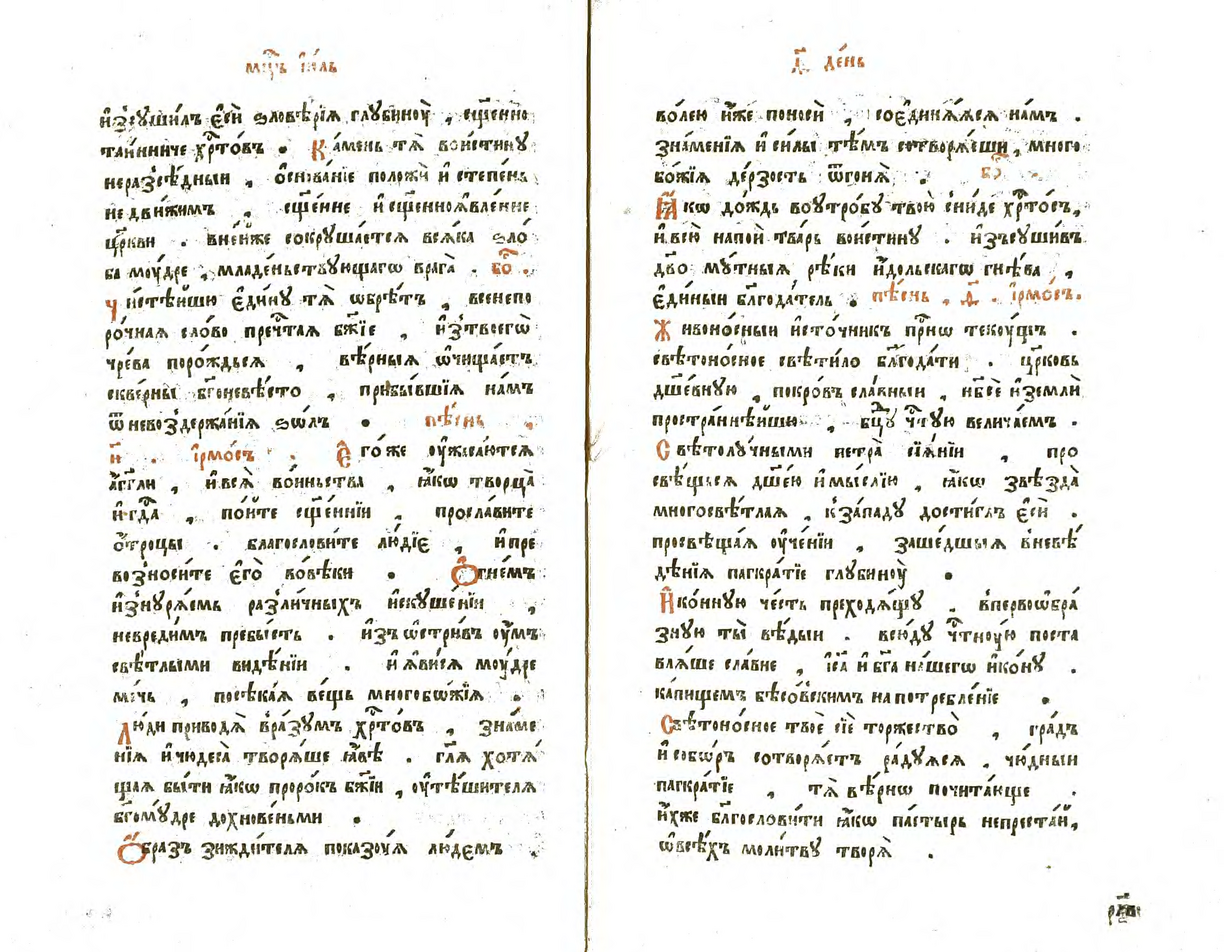 мⷭ҇цъ і҆ю́ль
и҆зсꙋши́лъ є҆сѝ ѕловѣ́рїѧ глꙋбинꙋ̀ , сщ҃е́нно
таи́нниче хрⷭ҇то́въ . Ка́мень тѧ̀ вои́стинꙋ
неразсѣ́дныи , ѻ҆снова́нїе положѝ и҆ степе́нь
недви́жимъ , сщ҃е́нне и҆ сщ҃енноꙗвле́нне
цр҃кви . вне́йже сокрꙋша́етсѧ всѧ́ка ѕло́
ба мꙋ́дре , младе́ньствꙋющагѡ врага̀ . бо҃ .
Чи́стѣйшꙋ є҆ди́нꙋ тѧ̀ ѡ҆брѣ́тъ , всенепо
ро́чнаѧ сло́во пречⷭ҇таѧ бж҃їе , и҆зтвоегѡ̀
чре́ва поро́ждьсѧ , вѣ́рныѧ ѡ҆чища́етъ
скве́рны бг҃оневѣ́сто , прибы́вшїѧ на́мъ
ѿневоздержа́нїѧ ѕѡ́лъ . пѣ́снь ,
и҃ . і҆рмо́съ . Є҆го́же ᲂу҆жаса́ютсѧ
а҆́гг҃ли , и҆всѧ̀ во́иньства , ꙗ҆́кѡ творца̀
и҆гдⷭ҇а , по́ите сщ҃е́ннїи , просла́вите
ѻ҆́троцы . благослови́те лю́дїе , и҆пре
возноси́те є҆го̀ вовѣ́ки . Ѻ҆гне́мъ
и҆знꙋрѧ́емь разли́чныхъ и҆скꙋше́нїи ,
невреди́мъ пребы́сть . и҆зъѡстри́въ ᲂу҆́мъ
свѣ́тлыми видѣ́нїи . и҆ ꙗ҆ви́сѧ мꙋ́дре
ме́чь , посѣка́ѧ ве́щь многобѡ́жїѧ .
Лю́ди приводѧ̀ вра́зꙋмъ хрⷭ҇то́въ , зна́ме
нїѧ и҆чюдеса̀ творѧ́ше ꙗ҆́вѣ . гл҃ѧ хотѧ́
щаѧ бы́ти ꙗ҆́кѡ проро́къ бж҃їи , ᲂу҆тѣ́шителѧ
бг҃омꙋ́дре дохнове́ньми .
Ѻ҆́бразъ зижди́телѧ показꙋ́ѧ лю́демъ .
д҃ де́нь
во́лею и҆́же поносѝ , соєдинѧ́ѧсѧ на́мъ .
зна́менїѧ и҆ си́лы тѣ́мъ сотворѧ́еши , много
бо́жїѧ де́рзость ѿгонѧ̀ . бо҃ .
Ꙗ҆́кѡ до́ждь воутро́бꙋ твою̀ сни́де хрⷭ҇то́съ,
и҆всю̀ напоѝ тва́рь вои́стинꙋ . и҆зъсꙋши́въ
дв҃о мꙋ́тныѧ рѣ́ки и҆́дольскагѡ гнѣ́ва ,
є҆ди́ныи бл҃года́тель . пѣ́снь , д҃ . і҆рмо́съ.
Живоно́сныи и҆сто́чникъ при́сѡ текꙋ́щь .
свѣтоно́сное свѣти́ло бл҃года́ти . цр҃ковь
дш҃е́внꙋю , покро́въ сла́вныи , нб҃сѐ и҆землѝ
простра́ннѣйшꙋю . бц҃ꙋ чⷭ҇тꙋю велича́емъ .
Свѣтолꙋ́чными петра̀ сїѧ́нїи , про
свѣ́щьсѧ дш҃е́ю и҆мы́слїю , ꙗ҆́кѡ звѣзда̀
многосвѣ́тлаѧ , к за́падꙋ дости́глъ є҆сѝ .
просвѣща́ѧ ᲂу҆че́нїи , заше́дшыѧ вневѣ́
дѣ́нїѧ пагкра́тїе глꙋбинꙋ̀ .
И҆ко́ннꙋю че́сть преходѧ́щꙋ . впервоѡбра́
знꙋю ты̀ вѣ́дыи . всю́дꙋ чⷭ҇тнꙋ́ю поста
влѧ́ше сла́вне , і҆с҃а и҆ бг҃а на́шегѡ и҆ко́нꙋ .
ка́пищемъ бѣсо́вскимъ на потребле́нїе .
Свѣтоно́сное твоѐ сїѐ торжество̀ , гра́дъ
и҆ собо́ръ сотворѧ́етъ ра́дꙋѧсѧ , чю́дныи
пагкра́тїе , тѧ̀ вѣ́рнѡ почита́юще .
и҆́хже бл҃гослови́ти ꙗ҆́кѡ па́стырь непреста́й,
ѡ҆всѣ́хъ моли́твꙋ творѧ̀ .